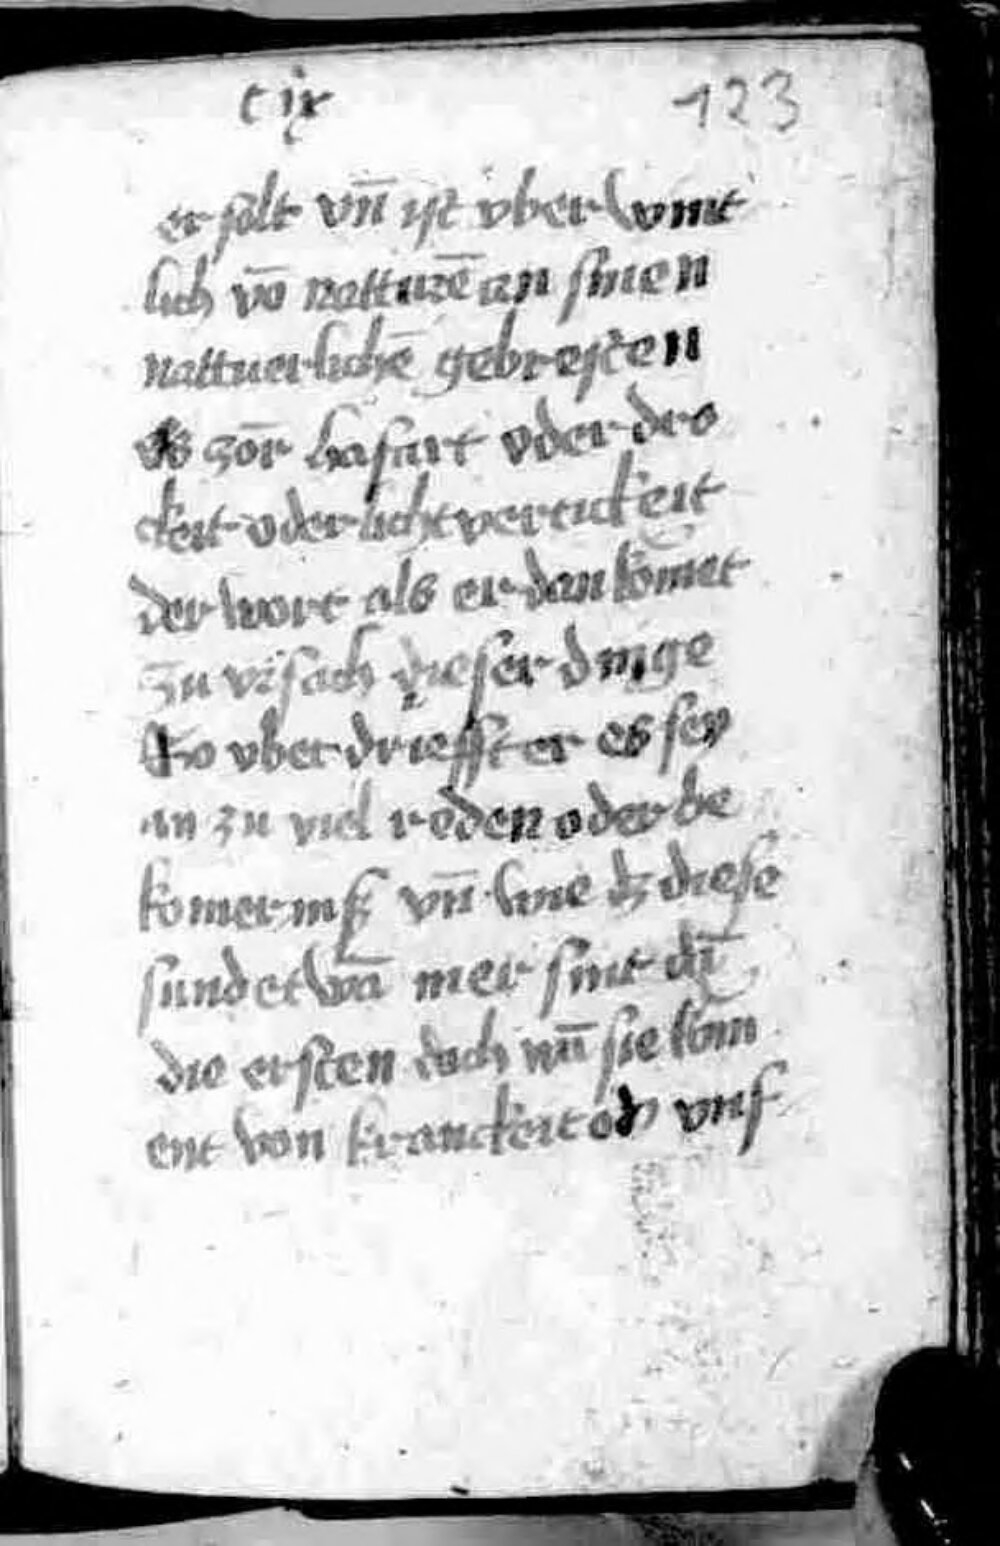 cix 123
er solt vn̄ ist vber wint
lich vō natturē an sinen
natturlichē gebresten
zōr hafart oder dro
ckeit oder lichtvertickeit
der wort als er dan komet
zu vrsach dieser dinge
So vber drieffst er es sey
an zu viel reden oder be
komerniß vn̄ wie dz diese
sund etwā mer sint dā
die ersten doch wā sie kom
ent von kranckeit vnſ